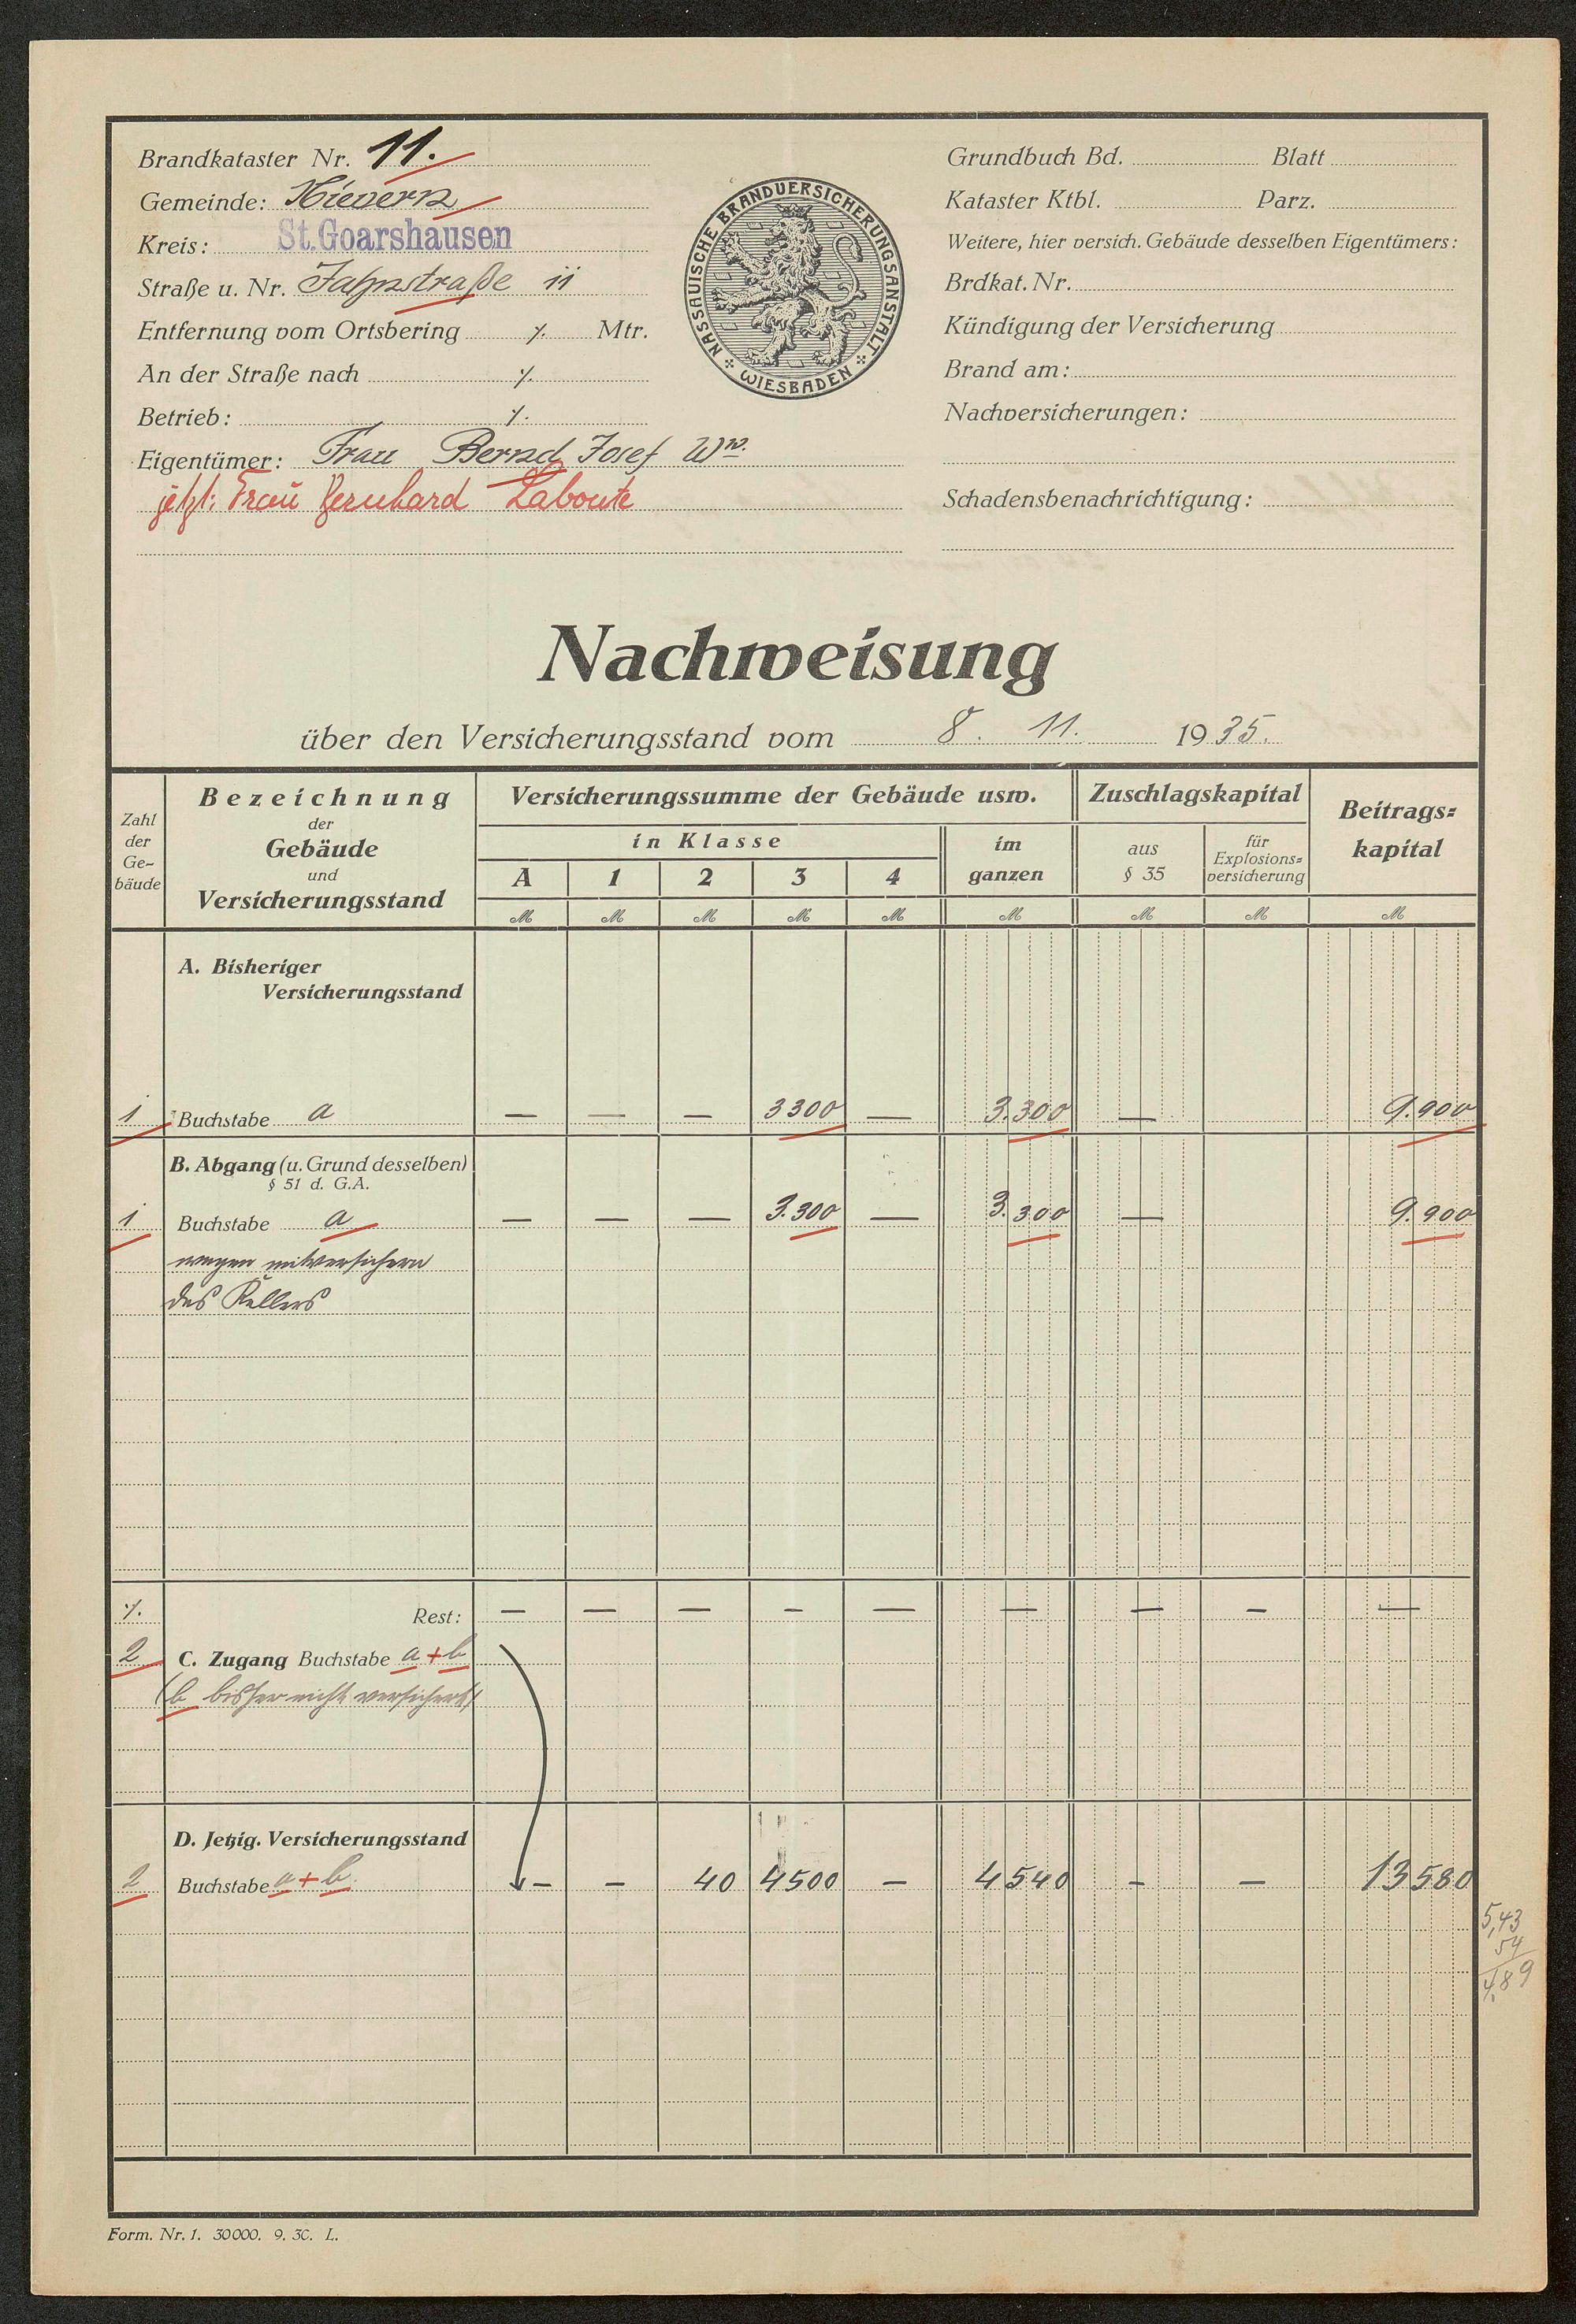 Brandkataster Nr. 11.
Gemeinde: Nievern
Kreis: St. Goarshausen
Straße u. Nr. Jahnstraße 11
Entfernung vom Ortsbering ./. Mtr.
An der Straße nach ./.
Betrieb: ./.
Eigentümer: Frau Bernd Josef Ww.
jetzt: Frau Bernhard Laboute
NASSAUISCHE BRANDVERSICHERUNGSANSTALT
WIESBADEN
Grundbuch Bd. Blatt
Kataster Ktbl. Parz.
Weitere, hier versich. Gebäude desselben Eigentümers:
Brdkat. Nr.
Kündigung der Versicherung
Brand am:
Nachversicherungen:
Schadensbenachrichtigung:
Nachweisung
über den Versicherungsstand vom 8. 11. 1935.
Zahl der Ge-bäude
Bezeichnung der Gebäude und Versicherungsstand
Versicherungssumme der Gebäude usw.
in Klasse
A 1 2 3 4
im ganzen
Zuschlagskapital
aus § 35
für Explosions=versicherung
Beitrags=kapital
M M M M M M M M M
A. Bisheriger
Versicherungsstand
1 Buchstabe a — — — 3300 — 3.300 — 9.900
B. Abgang (u. Grund desselben)
§ 51 d. G.A.
1 Buchstabe a — — — 3.300 — 3.300 — 9.900
wegen mitversichern
des Kellers
./. Rest: — — — — — — — — —
2 C. Zugang Buchstabe a + b
(b bisher nicht versichert)
D. Jetzig. Versicherungsstand
2 Buchstabe a + b - - 40 4500 - 4540 - - 13580
5,43
54
4,89
Form. Nr. 1. 30000. 9. 30. L.